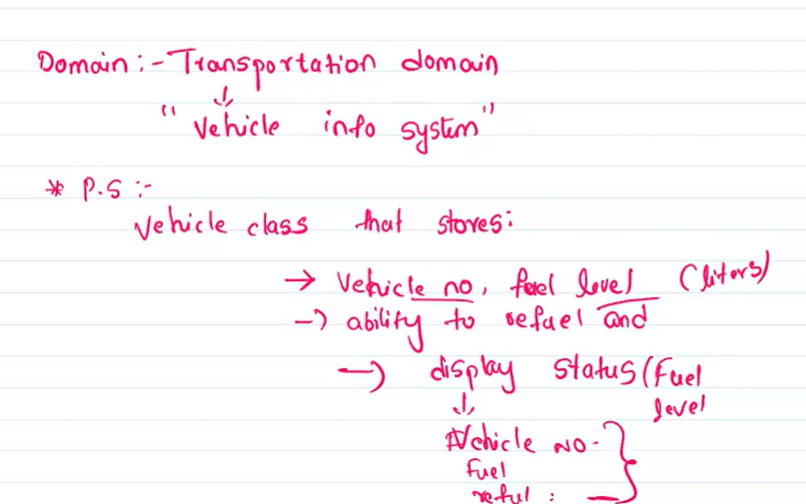 Domain :- Transportation domain
↓
"Vehicle info system"
* P.S :-
Vehicle class that stores:
→ Vehicle no, fuel level (liters)
→ ability to refuel and
→ display status (Fuel level
↓
Vehicle no-
Fuel
reful : —